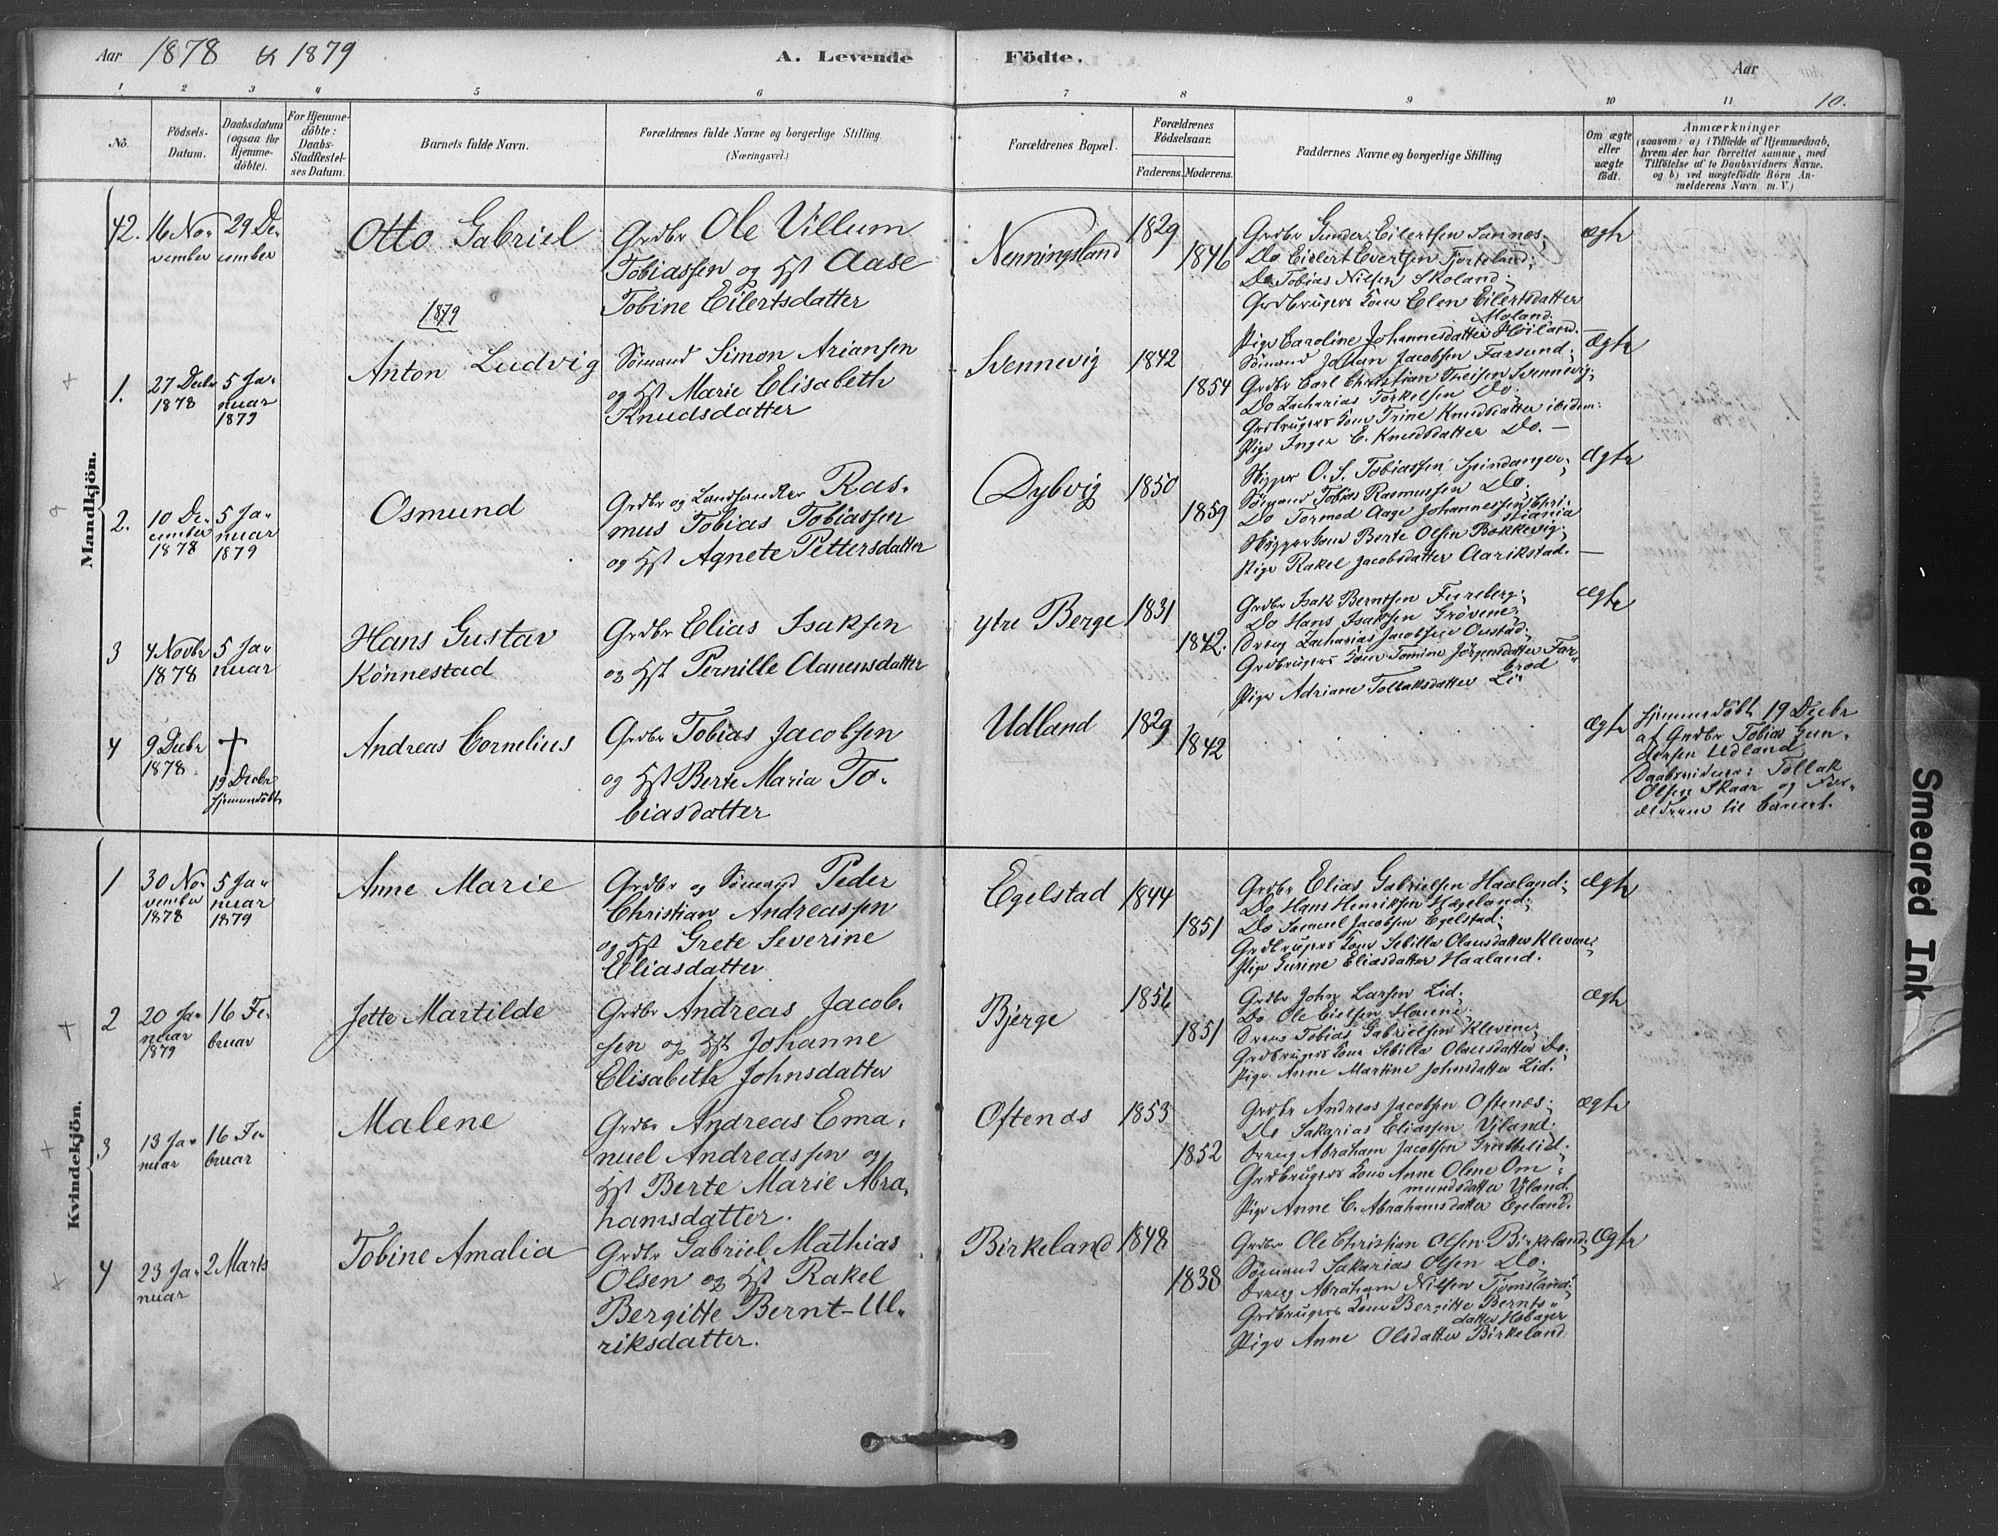 Aar 1878 & 1879
A. Levende Födte.
Aar
10.
1 2 3 4 5 6 7 8 9 10 11
No.
Födsels-
Datum.
Daabsdatum
(ogsaa for
Hjemme-
döbte).
For Hjemme-
döbte:
Daabs-
Stadfæstel-
ses Datum.
Barnets fulde Navn.
Forældrenes fulde Navne og borgerlige Stilling
(Næringsvei.)
Forældrenes Bopæl.
Forældrenes
Födselsaar.
Faderens. Moderens.
Faddernes Navne og borgerlige Stilling
Om ægte
eller
uægte
födt.
Anmærkninger
(saasom: a) i Tilfælde af Hjemmedaab,
hvem der har forrettet samme, med
Tilföielse af to Daabsvidners Navne,
og b) ved uægtefödte Börn An-
melderens Navn m. V.)
Mandkjön.
42.
16 No-
vember
29 De-
cember
Otto Gabriel
Grdbr Ole Villum
Tobiassen og Hst Aase
Tobine Eilertsdatter
Nenningsland
1829
1846
Grdbr Gunder Eilertsen Sannes;
Do Eielert Evertsen Fjorteland;
Do Tobias Nilsen Skoland;
Grdbrugers Kone Elen Eilertsdatter
Moland.
Pige Caroline Johannesdatter Høiland. —
ægte
1879
1.
27 Decbr
1878
5 Ja-
nuar
1879
Anton Ludvig
Sømand Simon Ariansen
og Hst Marie Elisabeth
Knudsdatter
Svennevig
1842
1854
Sømand Johan Jacobsen Farsund;
Grdbr Carl Christian Theisen Svennevig;
Do Zacharias Torkelsen Do;
Grdbrugers Kone Trine Knudsdatter ibidem:
Pige Inger E. Knudsdatter Do. —
Ægte
2.
10 De-
cember
1878
5 Ja-
nuar
1879
Osmund
Grdbr og Landhandler Ras-
mus Tobias Tobiassen
og Hst Agnete Pettersdatter
Dybvig
1850
1859
Skipper O. S. Tobiassen Spindanger;
Sømand Tobias Rasmussen Do.
Do Tormod Aage Johannessen Chri-
stiania
Skipper Kone Berte Olsen Bækkevig;
Pige Rakel Jacobsdatter Aarikstad. —
Ægte
3
4 Novbr
1878
5 Ja-
nuar
Hans Gustav
Kønnestad
Grdbr Elias Isaksen
og Hst Pernille Aanensdatter
ytre Berge
1831
1842.
Grdbr Isak Berntsen Fureberg;
Do Hans Isaksen Grøvene;
Dreng Zacharias Jacobsen Oustad;
Grdbrugers Kone Tomine Jörgensdatter For-
brod
Pige Adriane Tollaksdatter Li
Ægte
4
9 Decbr
1878
†
19 Decbr
hjemmedöbt
Andreas Cornelius
Grdbr Tobias Jacobsen
og Hst Berte Maria To-
biasdatter
Udland
1829
1842
Ægte
Hjemmedöbt 19 Decbr
af Grdbr Tobias Gun-
dersen Udland
Daabsvidner: Tollak
Olsen Skaar og For-
ældrene til barnet.
Kvindekjön.
1
30 No-
vember
1878
5 Ja-
nuar
1879
Anne Marie
Grdbr og Sømand Peder
Christian Andreassen
og Hst Grete Severine
Eliasdatter
Egelstad
1844
1851
Grdbr Elias Gabrielsen Haaland;
Do Hans Henriksen Hageland;
Do Samuel Jacobsen Egelstad;
Grdbrugers Kone Sibilla Olausdatter Klevene;
Pige Gurine Eliasdatter Haaland.
Ægte
2
20 Ja-
nuar
1879
16 Fe-
bruar
Jette Martilde
Grdbr Andreas Jacob-
sen og Hst Johanne
Elisabeth Johnsdatter
Bjerge
1856
1851
Grdbr John Larsen Lid;
Do Ole Eielsen Haene;
Dreng Tobias Gabrielsen Klevene;
Grdbrugers Kone Sibilla Olausdatter Do;
Pige Anne Martine Johnsdatter Lid.
Ægte
3
13 Ja-
nuar
16 Fe-
bruar
Malene
Grdbr Andreas Ema-
nuel Andreassen og
Hst Berte Marie Abra-
hamsdatter.
Oftenæs
1853
1852
Grdbr Andreas Jacobsen Oftenæs;
Do Sakarias Eliassen Viland;
Dreng Abraham Jacobsen Grubbelid;
Grdbrugers Kone Anne Olene Om-
mundsdatter Viland.
Pige Anne C. Abrahamsdatter Egeland.
Ægte
4
23 Ja-
nuar
2 Marts
Tobine Amalia
Grdbr Gabriel Mathias
Olsen og Hst Rakel
Bergitte Bernt-Ul-
riksdatter.
Birkeland
1848
1838
Grdbr Ole Christian Olsen Birkeland;
Sømand Sakarias Olsen Do;
Dreng Abraham Nilsen Tjomsland;
Grdbrugers Kone Bergitte Bernts-
datter Hobager
Pige Anne Olsdatter Birkeland
Ægte
Smeared Ink